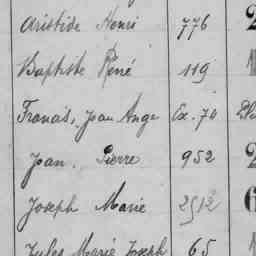 Aristide Henri 776 2
Baptiste René 119
Francis, Jean Ange Ex. 70
Jean Pierre 952 2
Joseph Marie 2512 6
Jules Marie Joseph 65